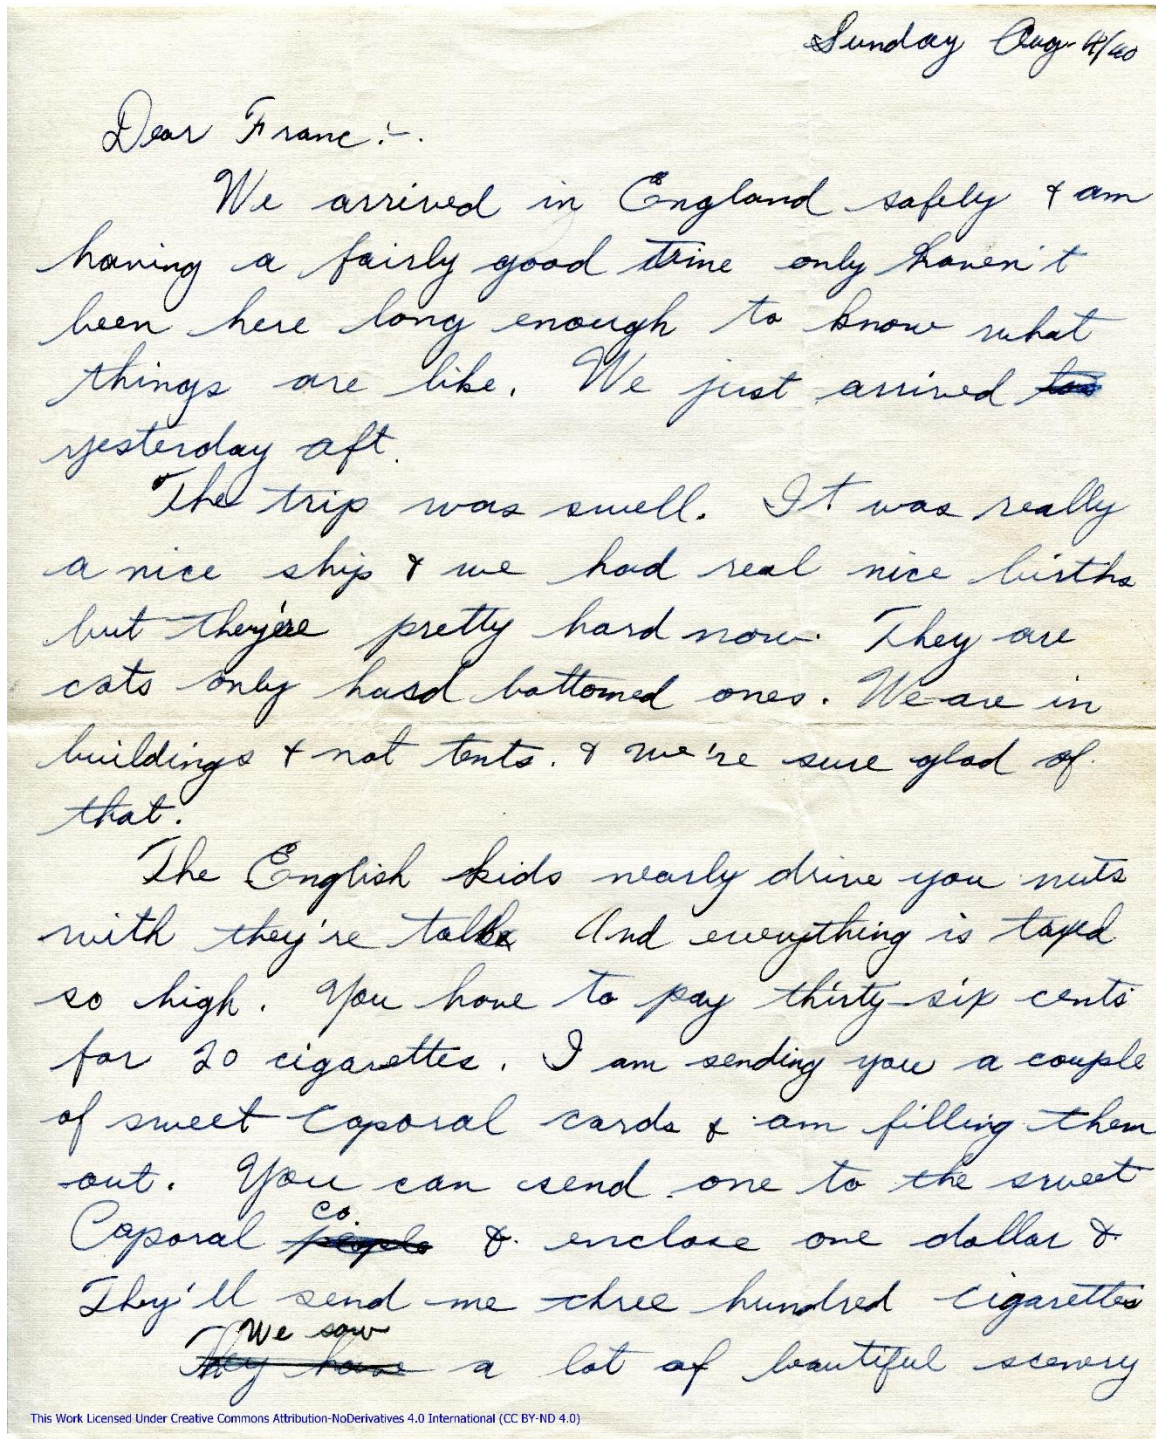 Sunday Aug. 4/40
Dear Franc:-.
We arrived in England safely & am
having a fairly good time only haven't
been here long enough to know what
things are like. We just arrived
yesterday aft.
The trip was swell. It was really
a nice ship & we had real nice births
but they're pretty hard now. They are
cots only hard bottomed ones. We are in
buildings & not tents. & we're sure glad of
that.
The English kids nearly drive you nuts
with they're talk And everything is taxed
so high. You have to pay thirty-six cents
for 20 cigarettes. I am sending you a couple
of sweet Caporal cards & am filling them
out. You can send one to the sweet
Caporal people co. & enclose one dollar &
They'll send me three hundred cigarettes
They have We saw a lot of beautiful scenery
This Work Licensed Under Creative Commons Attribution-NoDerivatives 4.0 International (CC BY-ND 4.0)